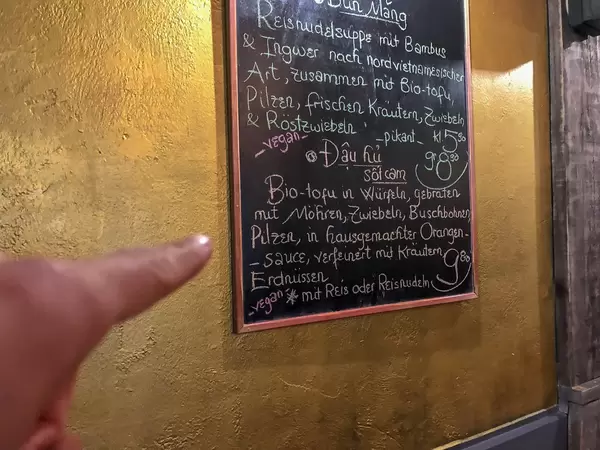 Bún Măng
Reisnudelsuppe mit Bambus
& Ingwer nach nordvietnamesischer
Art, zusammen mit Bio-tofu,
Pilzen, frischen Kräutern, Zwiebeln
& Röstzwiebeln _pikant_ kl 5,50
_vegan_ gr 8,90
Đậu hủ
sốt cam
Bio-tofu in Würfeln, gebraten
mit Möhren, Zwiebeln, Buschbohnen,
Pilzen, in hausgemachter Orangen-
-sauce, verfeinert mit Kräutern,
Erdnüssen 9,80
_vegan_ * mit Reis oder Reisnudeln